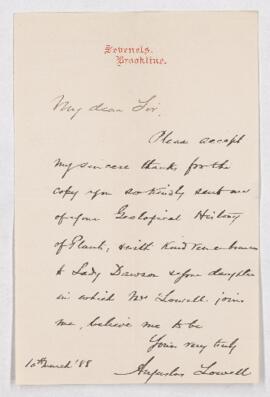 Sevenels.
Brookline.
My dear Sir.
Please accept
my sincere thanks for the
copy you so kindly sent me
of your Geological History
of Plants, with kind remembrances
to Lady Dawson & your daughter
in which Mrs Lowell joins
me, believe me to be
Yours very truly
Augustus Lowell
10th March '88